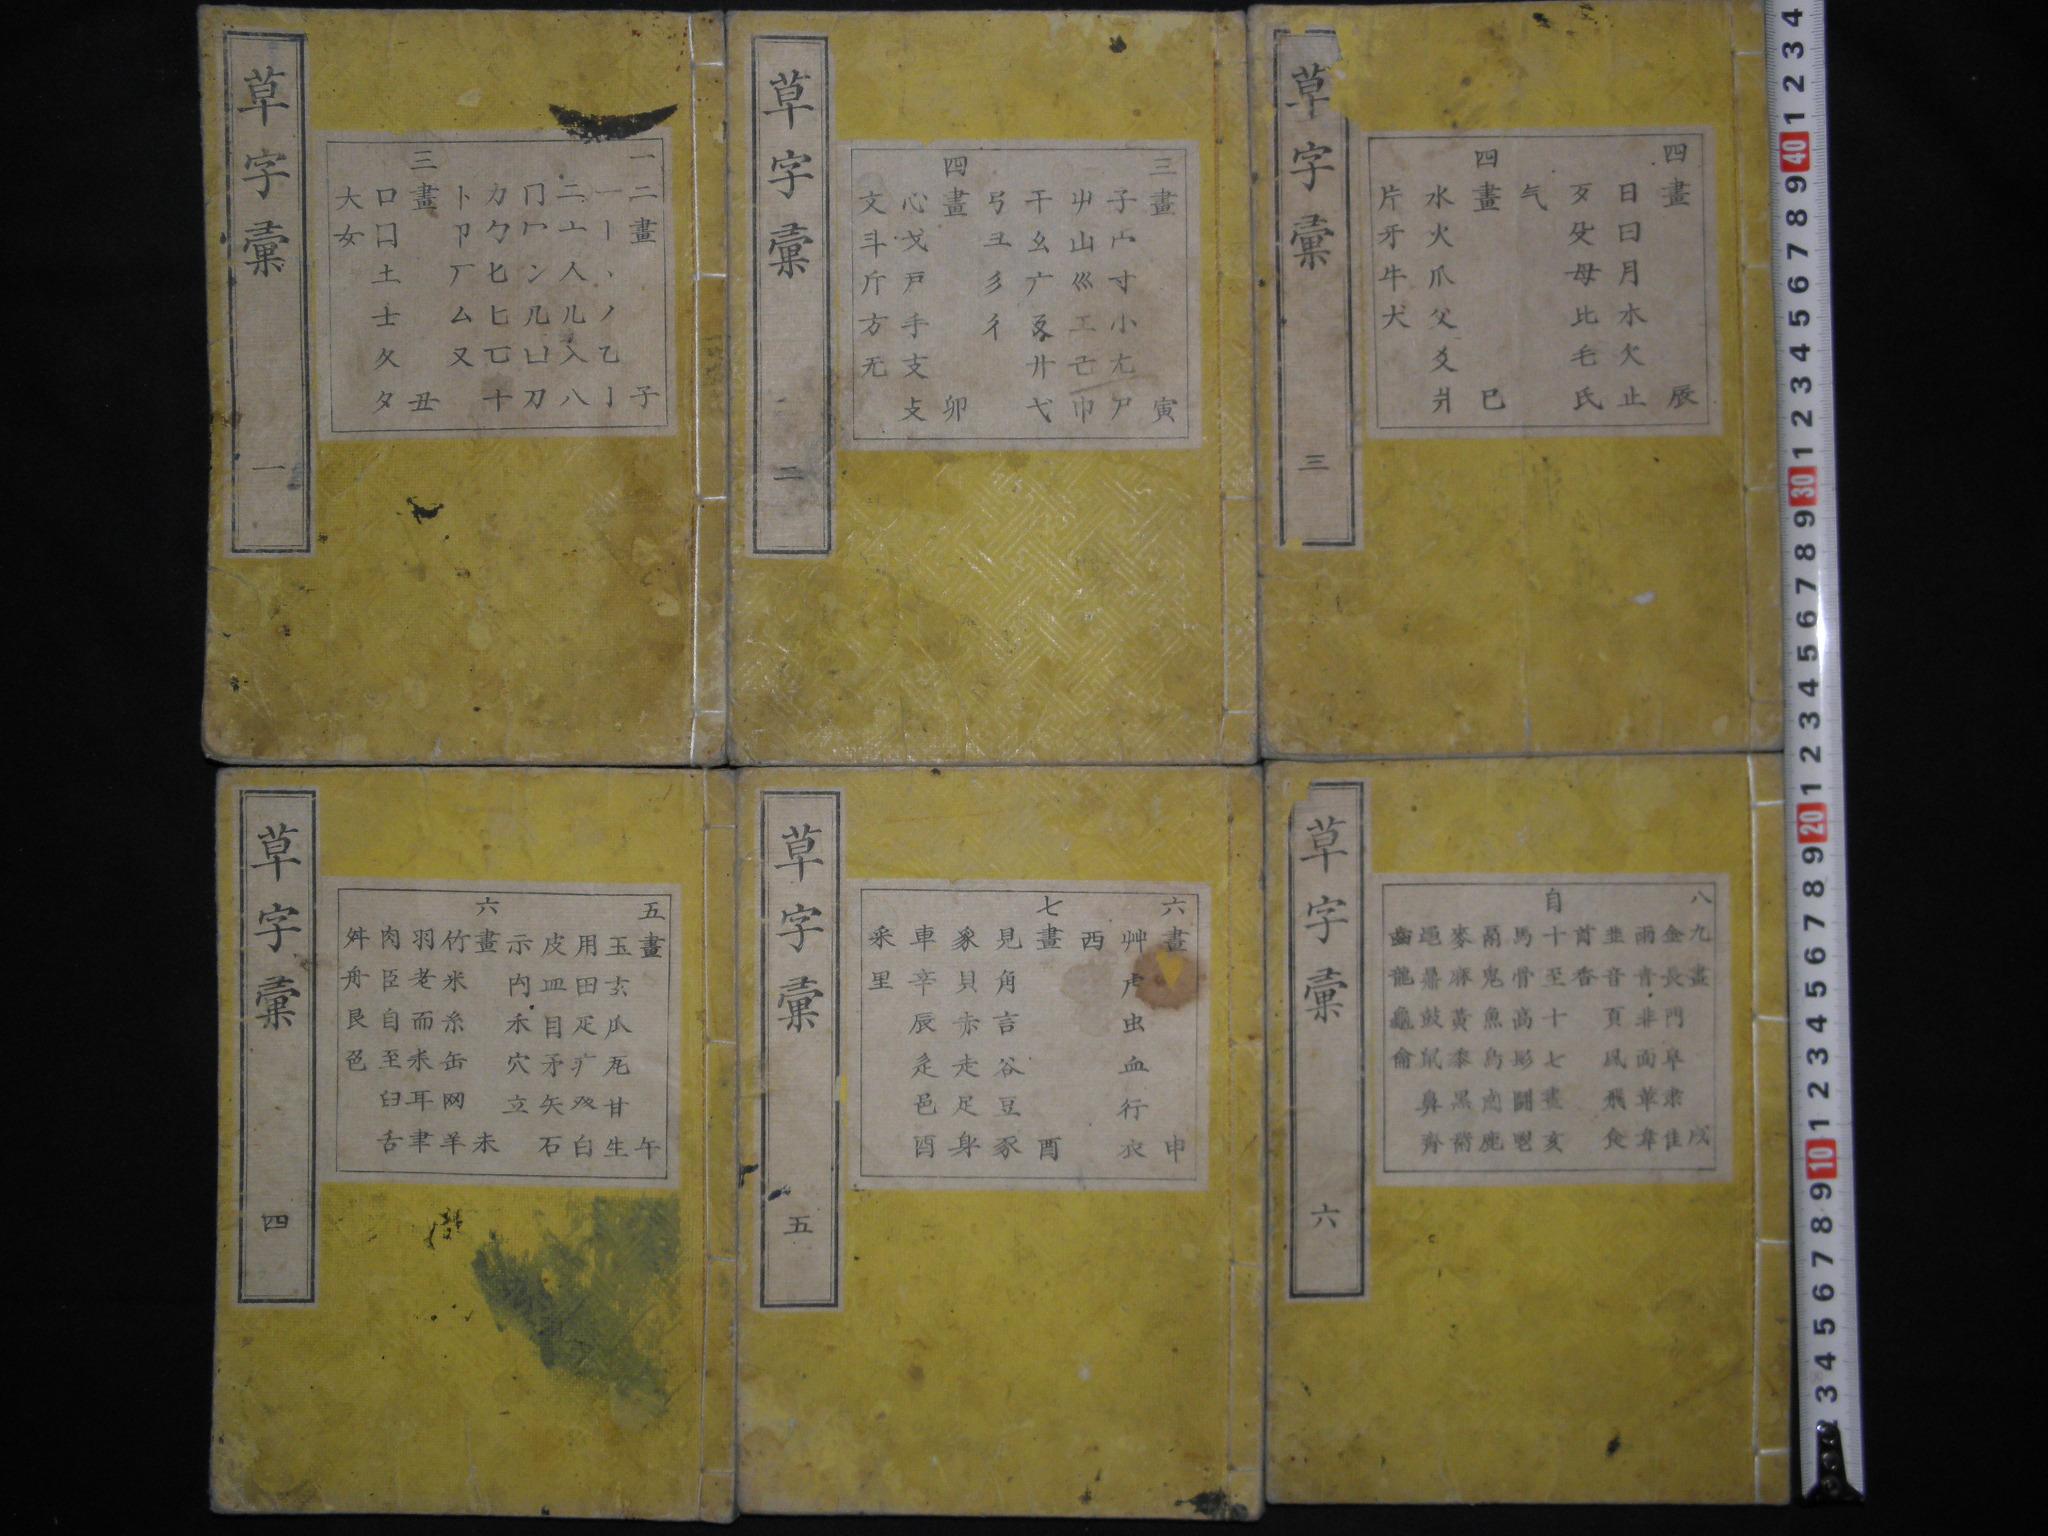 草字彙
一
一二畫 子
一丨丶丿乙亅
二亠人儿入八
冂冖冫几凵刀
力勹匕匚匸十
卜卩厂厶又
三畫 丑
口囗土士夂夕
大女
草字彙
二
三畫 寅
子宀寸小尢尸
屮山巛工己巾
干幺广廴廾弋
弓彐彡彳
四畫 卯
心戈戶手支攴
文斗斤方无
草字彙
三
四畫 辰
日曰月木欠止
歹殳毋比毛氏
气
四畫 巳
水火爪父爻爿
片牙牛犬
草字彙
四
五畫 午
玉玄瓜瓦甘生
用田疋疒癶白
皮皿目矛矢石
示禸禾穴立
六畫 未
竹米糸缶网羊
羽老而耒耳聿
肉臣自至臼舌
舛舟艮色
草字彙
五
六畫 申
艸虍虫血行衣
西
七畫 酉
見角言谷豆豕
豸貝赤走足身
車辛辰辵邑酉
釆里
草字彙
六
八九畫 戌
金長門阜隶隹
雨青非面革韋
韭音頁風飛食
首香
自十至十七畫 亥
馬骨高髟鬥鬯
鬲鬼魚鳥鹵鹿
麥麻黃黍黑黹
黽鼎鼓鼠鼻齊
齒龍龜龠
1 2 3 4 5 6 7 8 9 10 1 2 3 4 5 6 7 8 9 20 1 2 3 4 5 6 7 8 9 30 1 2 3 4 5 6 7 8 9 40 1 2 3 4